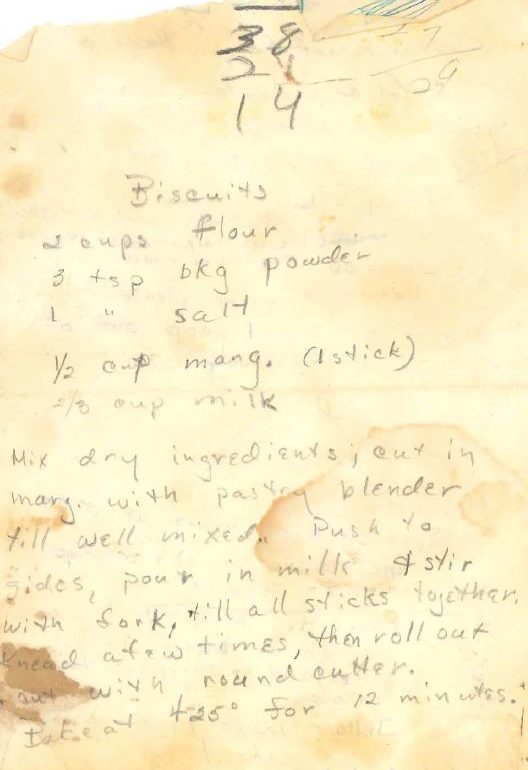 38
24
14
17
29
Biscuits
2 cups flour
3 tsp bkg powder
1 " salt
1/2 cup marg. (1 stick)
2/3 cup milk
Mix dry ingredients; cut in
marg. with pastry blender
till well mixed. Push to
sides, pour in milk & stir
with fork, till all sticks together.
Knead a few times, then roll out
cut with round cutter.
Bake at 425° for 12 minutes.